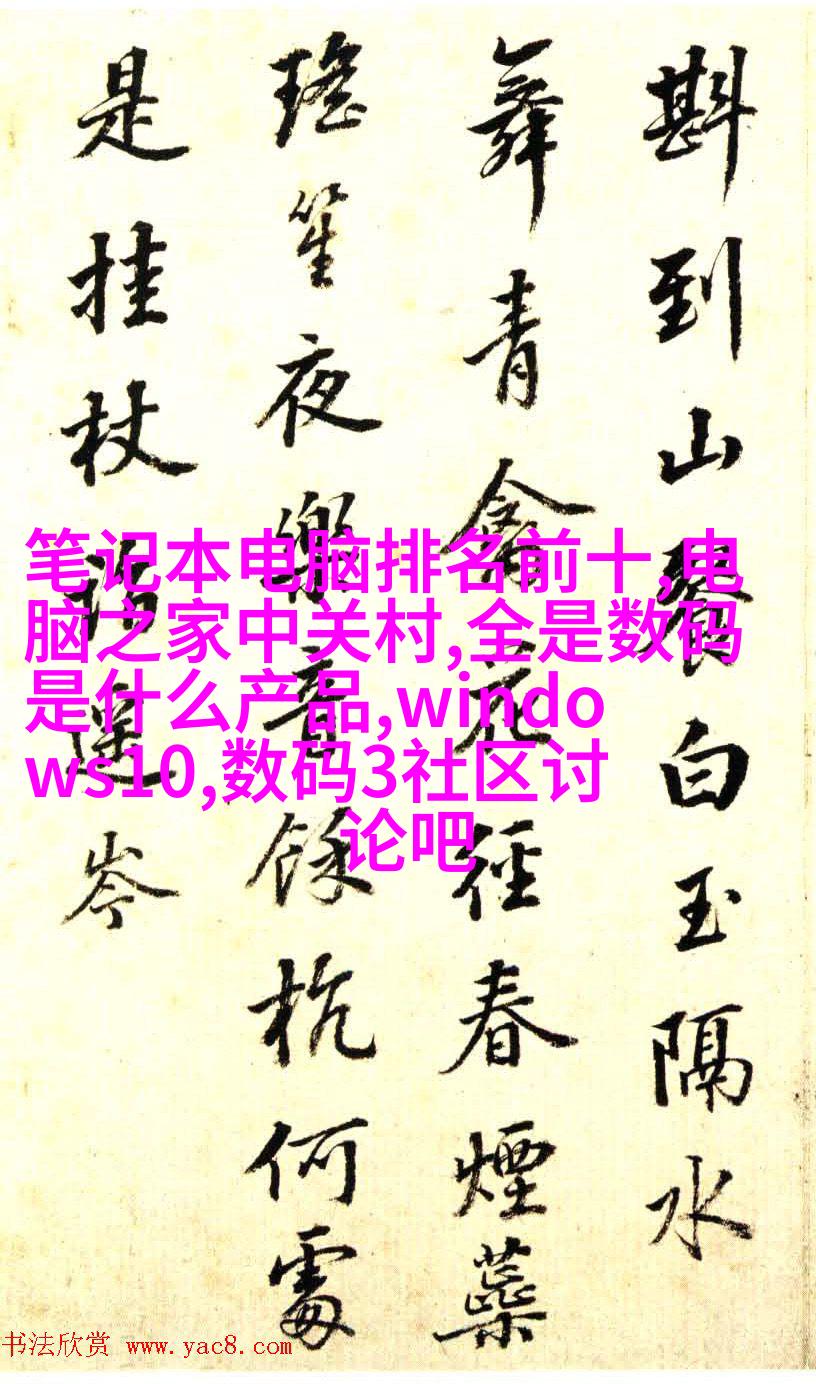 斟到山餐白玉隔水
舞青禽花径春煙蘂
瑤笙夜樂音餘杭何處
是挂杖遥岑
笔记本电脑排名前十,电
脑之家中关村,全是数码
是什么产品,windo
ws10,数码3社区讨
论吧
书法欣赏 www.yac8.com